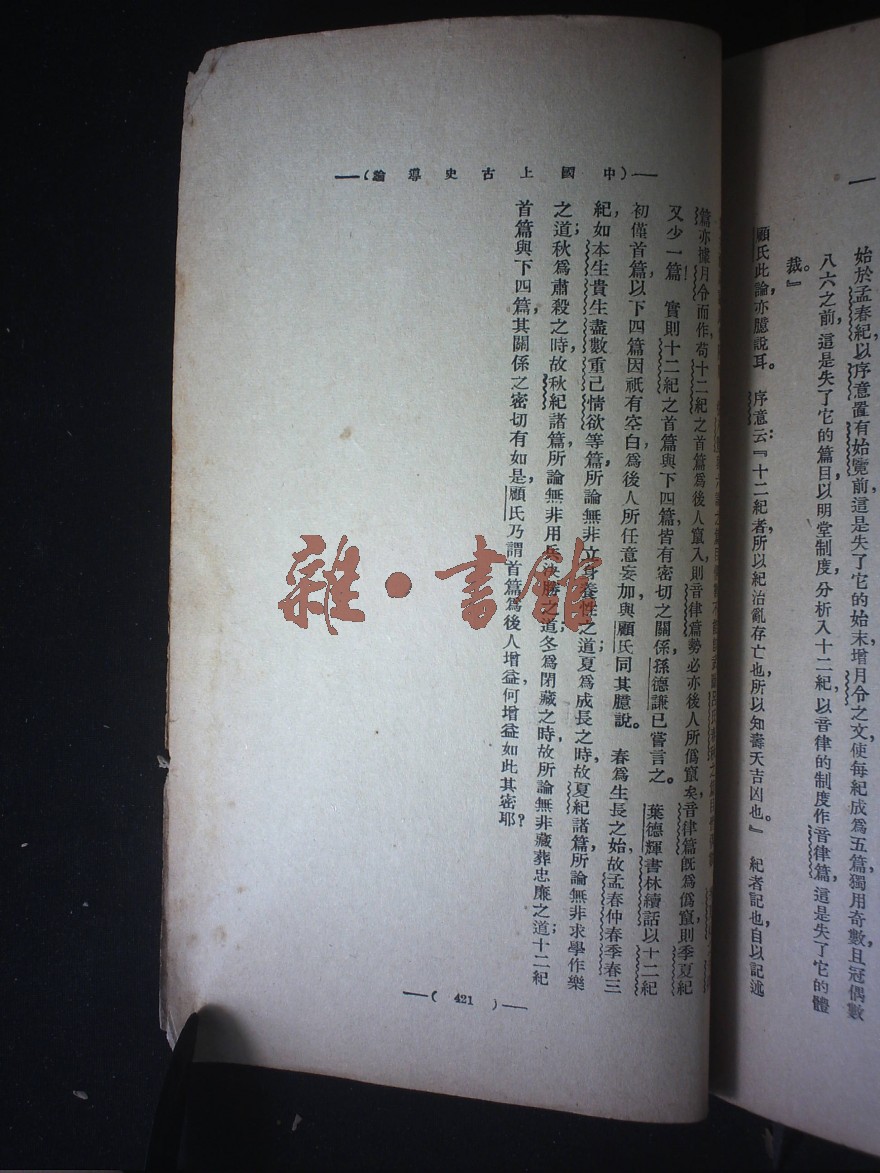 始於孟春紀,以序意置有始覽前,這是失了它的始末,增月令之文,使每紀成爲五篇,獨用奇數,且冠偶數
八六之前,這是失了它的篇目,以明堂制度,分析入十二紀,以音律的制度作音律篇,這是失了它的體
裁。』
顧氏此論,亦臆說耳。序意云:『十二紀者,所以紀治亂存亡也,所以知壽夭吉凶也。』紀者記也,自以記述
——(中國上古史導論)——
篇亦據月令而作,苟十二紀之首篇爲後人竄入,則音律篇勢必亦後人所僞竄矣,音律篇既爲僞竄,則季夏紀
又少一篇!實則十二紀之首篇與下四篇,皆有密切之關係,孫德謙已嘗言之。葉德輝書林續話以十二紀
初僅首篇,以下四篇因祇有空白,爲後人所任意妄加,與顧氏同其臆說。春爲生長之始,故孟春仲春季春三
紀,如本生貴生盡數重己情欲等篇,所論無非立身養性之道;夏爲成長之時,故夏紀諸篇,所論無非求學作樂
之道;秋爲肅殺之時,故秋紀諸篇,所論無非用兵決勝之道;冬爲閉藏之時,故所論無非藏葬忠廉之道;十二紀
首篇與下四篇,其關係之密切有如是,顧氏乃謂首篇爲後人增益,何增益如此其密耶?
——( 421 )——
雜·書館